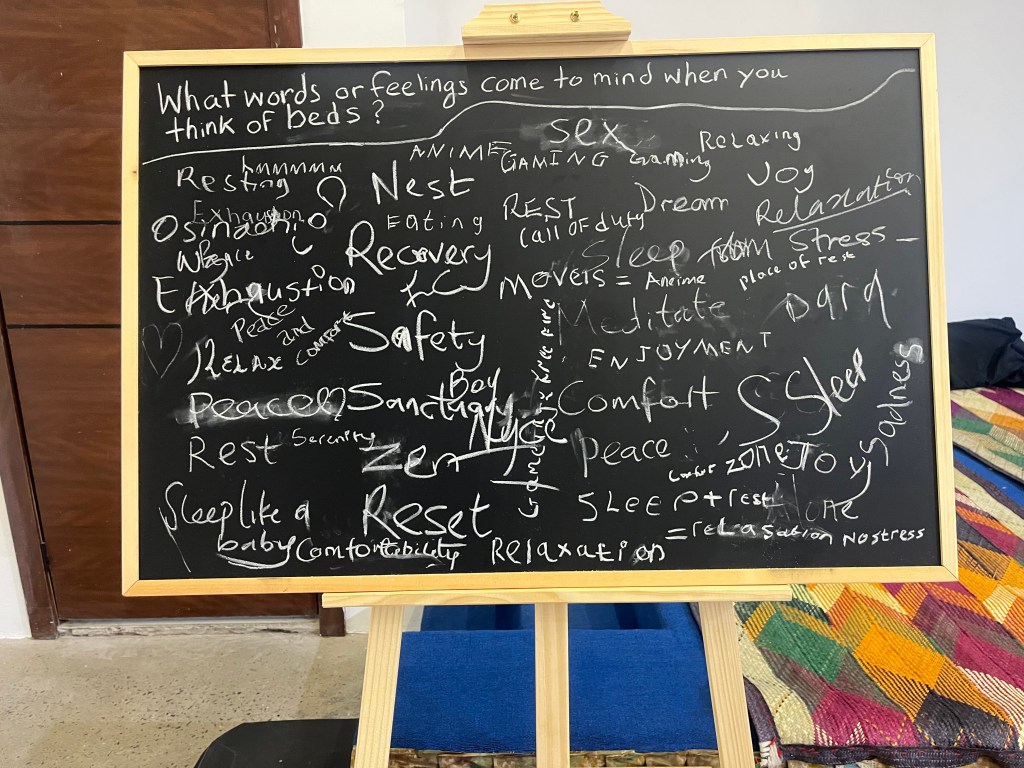 What words or feelings come to mind when you
think of beds?
sex
Relaxing
ANIME
GAMING
Gaming
hmmmmm
Resting
Nest
Joy
Exhaustion
Eating
REST
Dream
Relaxation
Osinachi
Call of duty
Recovery
Sleep from Stress
Peace
Exhaustion
Movies = Anime
place of rest
Meditate
Dark
Peace
and
comfort
Safety
RELAX
ENJOYMENT
Peace
Sanctuary
Boy
Comfort
Sleep
Sadness
Rest
Serenity
Zen
Nyce
Peace
Comfort zone
Joy
Sleep like a
baby
Reset
SLEEP + rest
= relaxation No stress
Comfortability
Relaxation